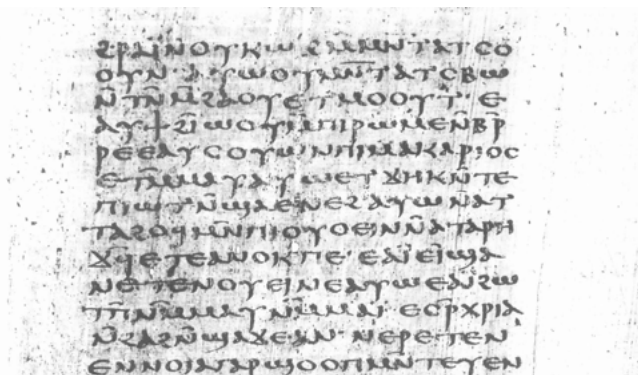 ϩⲣⲁⲓ̈ⲛⲟⲩⲕⲱ ϩⲛ̄ⲙⲛ̄ⲧⲁⲧⲥⲟ
ⲟⲩⲛ· ⲁⲩⲱⲟⲩⲙⲛ̄ⲧⲁⲧⲥⲃⲱ
ⲛ̄ⲧⲛ̄ⲙ̄ϩⲁⲟⲩ ⲉⲧⲙⲟⲟⲩⲧ· ⲉ
ⲁⲩϯϩⲓ̈ⲱⲟⲩⲙ̄ⲡⲓⲣⲱⲙⲉⲛ̄ⲃⲣ̄
ⲣⲉⲉⲁⲩⲥⲟⲩⲱⲛⲡⲓⲙⲁⲕⲁⲣⲓⲟⲥ
ⲉⲧⲙ̄ⲙⲁⲩⲁⲩⲱⲉⲧϫⲏⲕⲛ̄ⲧⲉ
ⲡⲓⲱⲧⲛ̄ϣⲁⲉⲛⲉϩⲁⲩⲱⲛ̄ⲁⲧ
ⲧⲁϩⲟϥⲙⲛ̄ⲡⲓⲟⲩⲟⲉⲓⲛⲛ̄ⲁⲧⲁⲣⲏ
ϫϥⲉⲧⲉⲁⲛⲟⲕⲡⲉ· ⲉⲁⲓ̈ⲉⲓϣⲁ
ⲛⲉⲧⲉⲛⲟⲩⲉⲓⲛⲉⲁⲩⲱⲉⲁⲓ̈ϩⲱ
ⲧⲡ̄ⲛⲙ̄ⲙⲁⲩⲛⲙ̄ⲙⲁⲛ· ⲉⲥⲣ̄ⲭⲣⲓⲁ
ⲛ̄ϩⲁϩⲛ̄ϣⲁϫⲉⲁⲛ· ⲛⲉⲣⲉⲧⲉⲛ
ⲉⲛⲛⲟⲓⲁⲅⲁⲣϣⲟⲟⲡⲙⲛ̄ⲧⲉⲩⲉⲛ